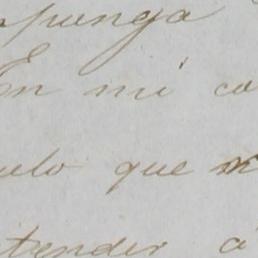 ponga
En mi ca
ulo que
tender á